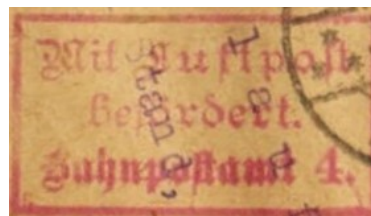 Mit Luftpost
befördert.
Bahnpostamt 4.